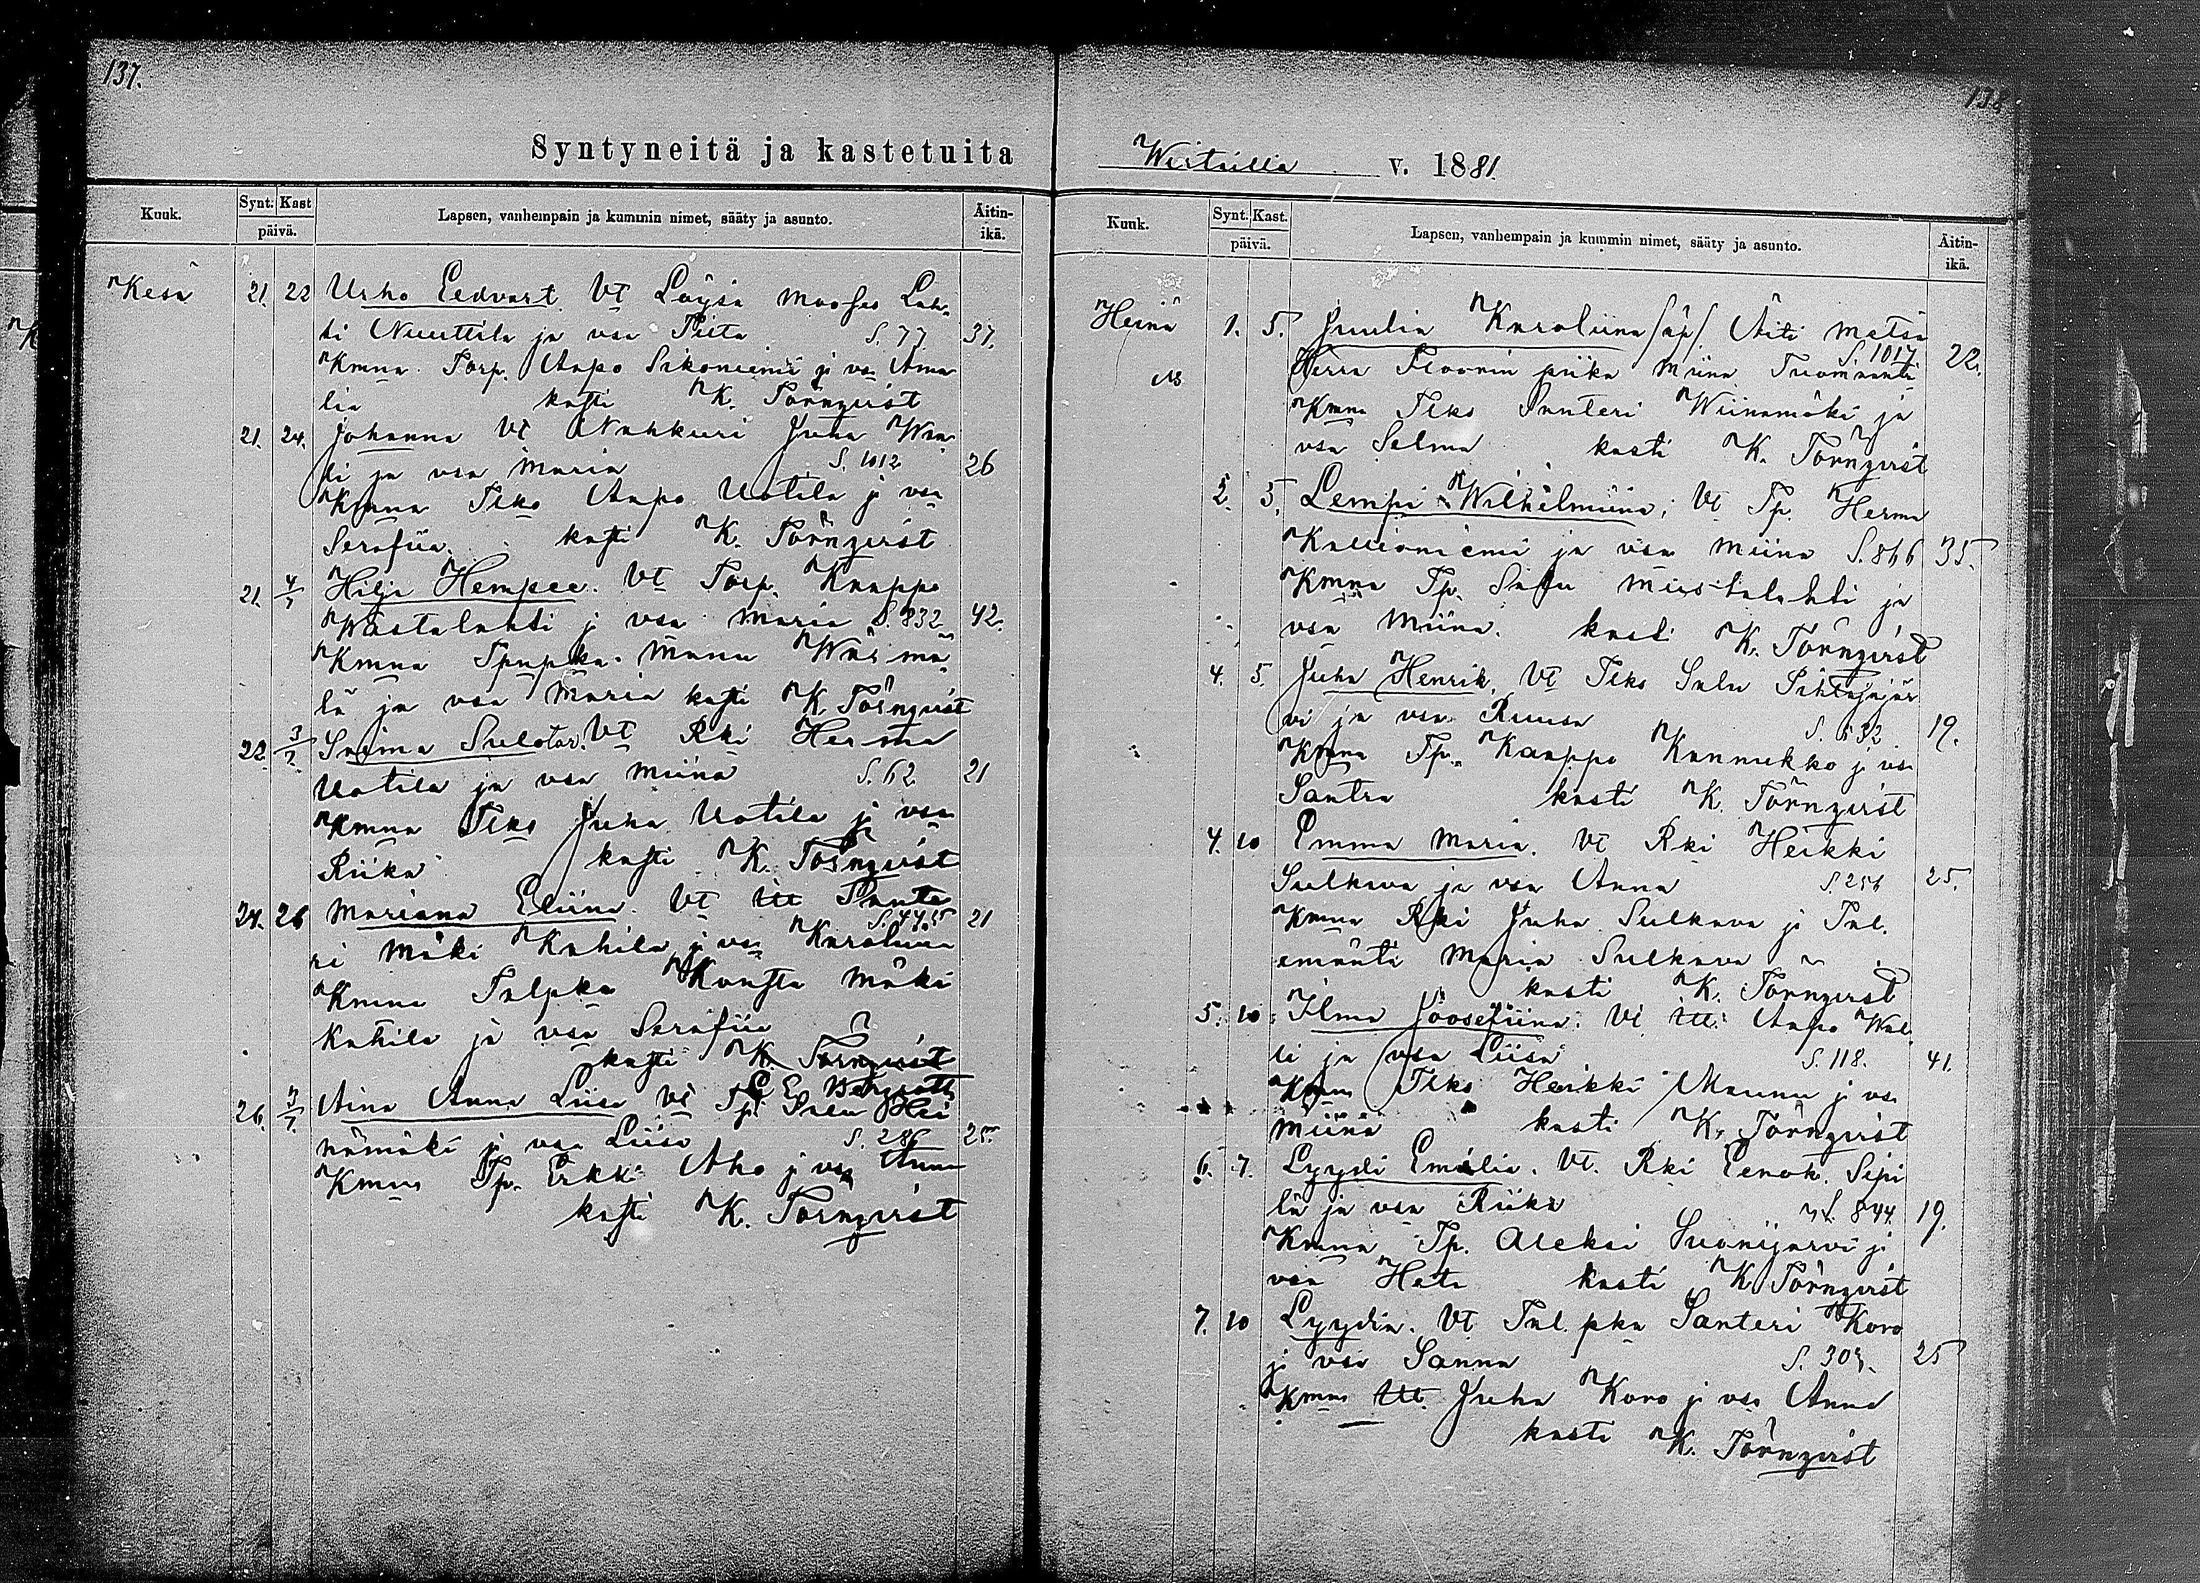 137.
Syntyneitä ja kastetuita
Kuuk. Synt. Kast päivä. Lapsen, vanhempain ja kummin nimet, sääty ja asunto. Äitin-ikä.
Kesä 21. 22 Urho Eedvart Vt Löysä Mooses Lah-
ti Nuuttila ja vsa Tiita S. 77 37.
Kmna Torp. Aapo Sikoniemi j vsa Ama
lia kasti K. Törnqvist
21. 24. Johanna Vt Nahkuri Juha Wra
ti ja vsa Maria S. 1012 26
Kmna Tlko Aapo Uotila j vsa
Serafiia kasti K. Törnqvist
21. 4/7 Hilji Hempee. Vt Torp. Kaappo
Wästalahti j vsa Maria S. 832 42.
Kmna Manu
lä ja vsa Maria kasti K. Törnqvist
22. 3/7. Saima Sulotar. Vt Rki Herma
Uotila ja vsa Miina S. 62 21
Kmna Tlko Juha Uotila j vsa
Riika kasti K. Törnqvist
24. 26 Mariana Eliina. Vt Itt Sante
ri Mäki Kahila j vsa Karoliina 21
Kmna Talpka Kousta Mäki
Kahila ja vsa Serafiia
kasti K. Törnqvist
26. 3/7. Aina Anna Liisa Vt Tp Salu Hei
nämäki j vsa Liisa S. 286 25.
Kmna Tp. Erkki Aho j vsa Anna
kasti K. Törnqvist
138.
v. 1881.
Kuuk. Synt. Kast. päivä. Lapsen, vanhempain ja kummin nimet, sääty ja asunto. Äitin-ikä.
Heinä 1. 5. Juulia Karoliina /äp/. Äiti Metsä
Herra Floorin piika Miina S. 1017 22.
Kmna Tlko Santeri Wiinamäki ja
vsa Selma kasti K. Törnqvist
2. 5. Lempi Wilhelmiina; Vt Tp. Herma
Kallioniemi ja vsa Miina S. 866 35.
Kmna Tp. Salu Mustalahti ja
vsa Miina. kasti K. Törnqvist
4. 5 Juha Henrik. Vt Tlko Salu Sihtajär
vi ja vsa Ruusa S. 632 19.
Kmna Tp. Kaappo Kannukko j vsa
Santra kasti K. Törnqvist
4. 10 Emma Maria. Vt Rki Heikki
Sulkava ja vsa Anna S. 256 25.
Kmna Rki Juha Sulkava j Tal.
emäntä Maria Sulkava
kasti K. Törnqvist
5. 10. Ilma Joosefiina. Vt Itt. Aapo Wal
li ja vsa Liisa S. 118. 41.
Kmna Tlko Heikki Maunu j vsa
Miina kasti K. Törnqvist
6. 7. Lyydi Emilia. Vt. Rki Eenok. Sipi
lä ja vsa Riika S. 844 19.
Kmna Tp. Aleksi Suonijärvi j
vsa Heta kasti K. Törnqvist
7. 10 Lyydia. Vt Tal. pka Santeri Koro
j vsa Sanna 25
Kmna Itt. Juha Koro j vsa Anna
kasti K. Törnqvist